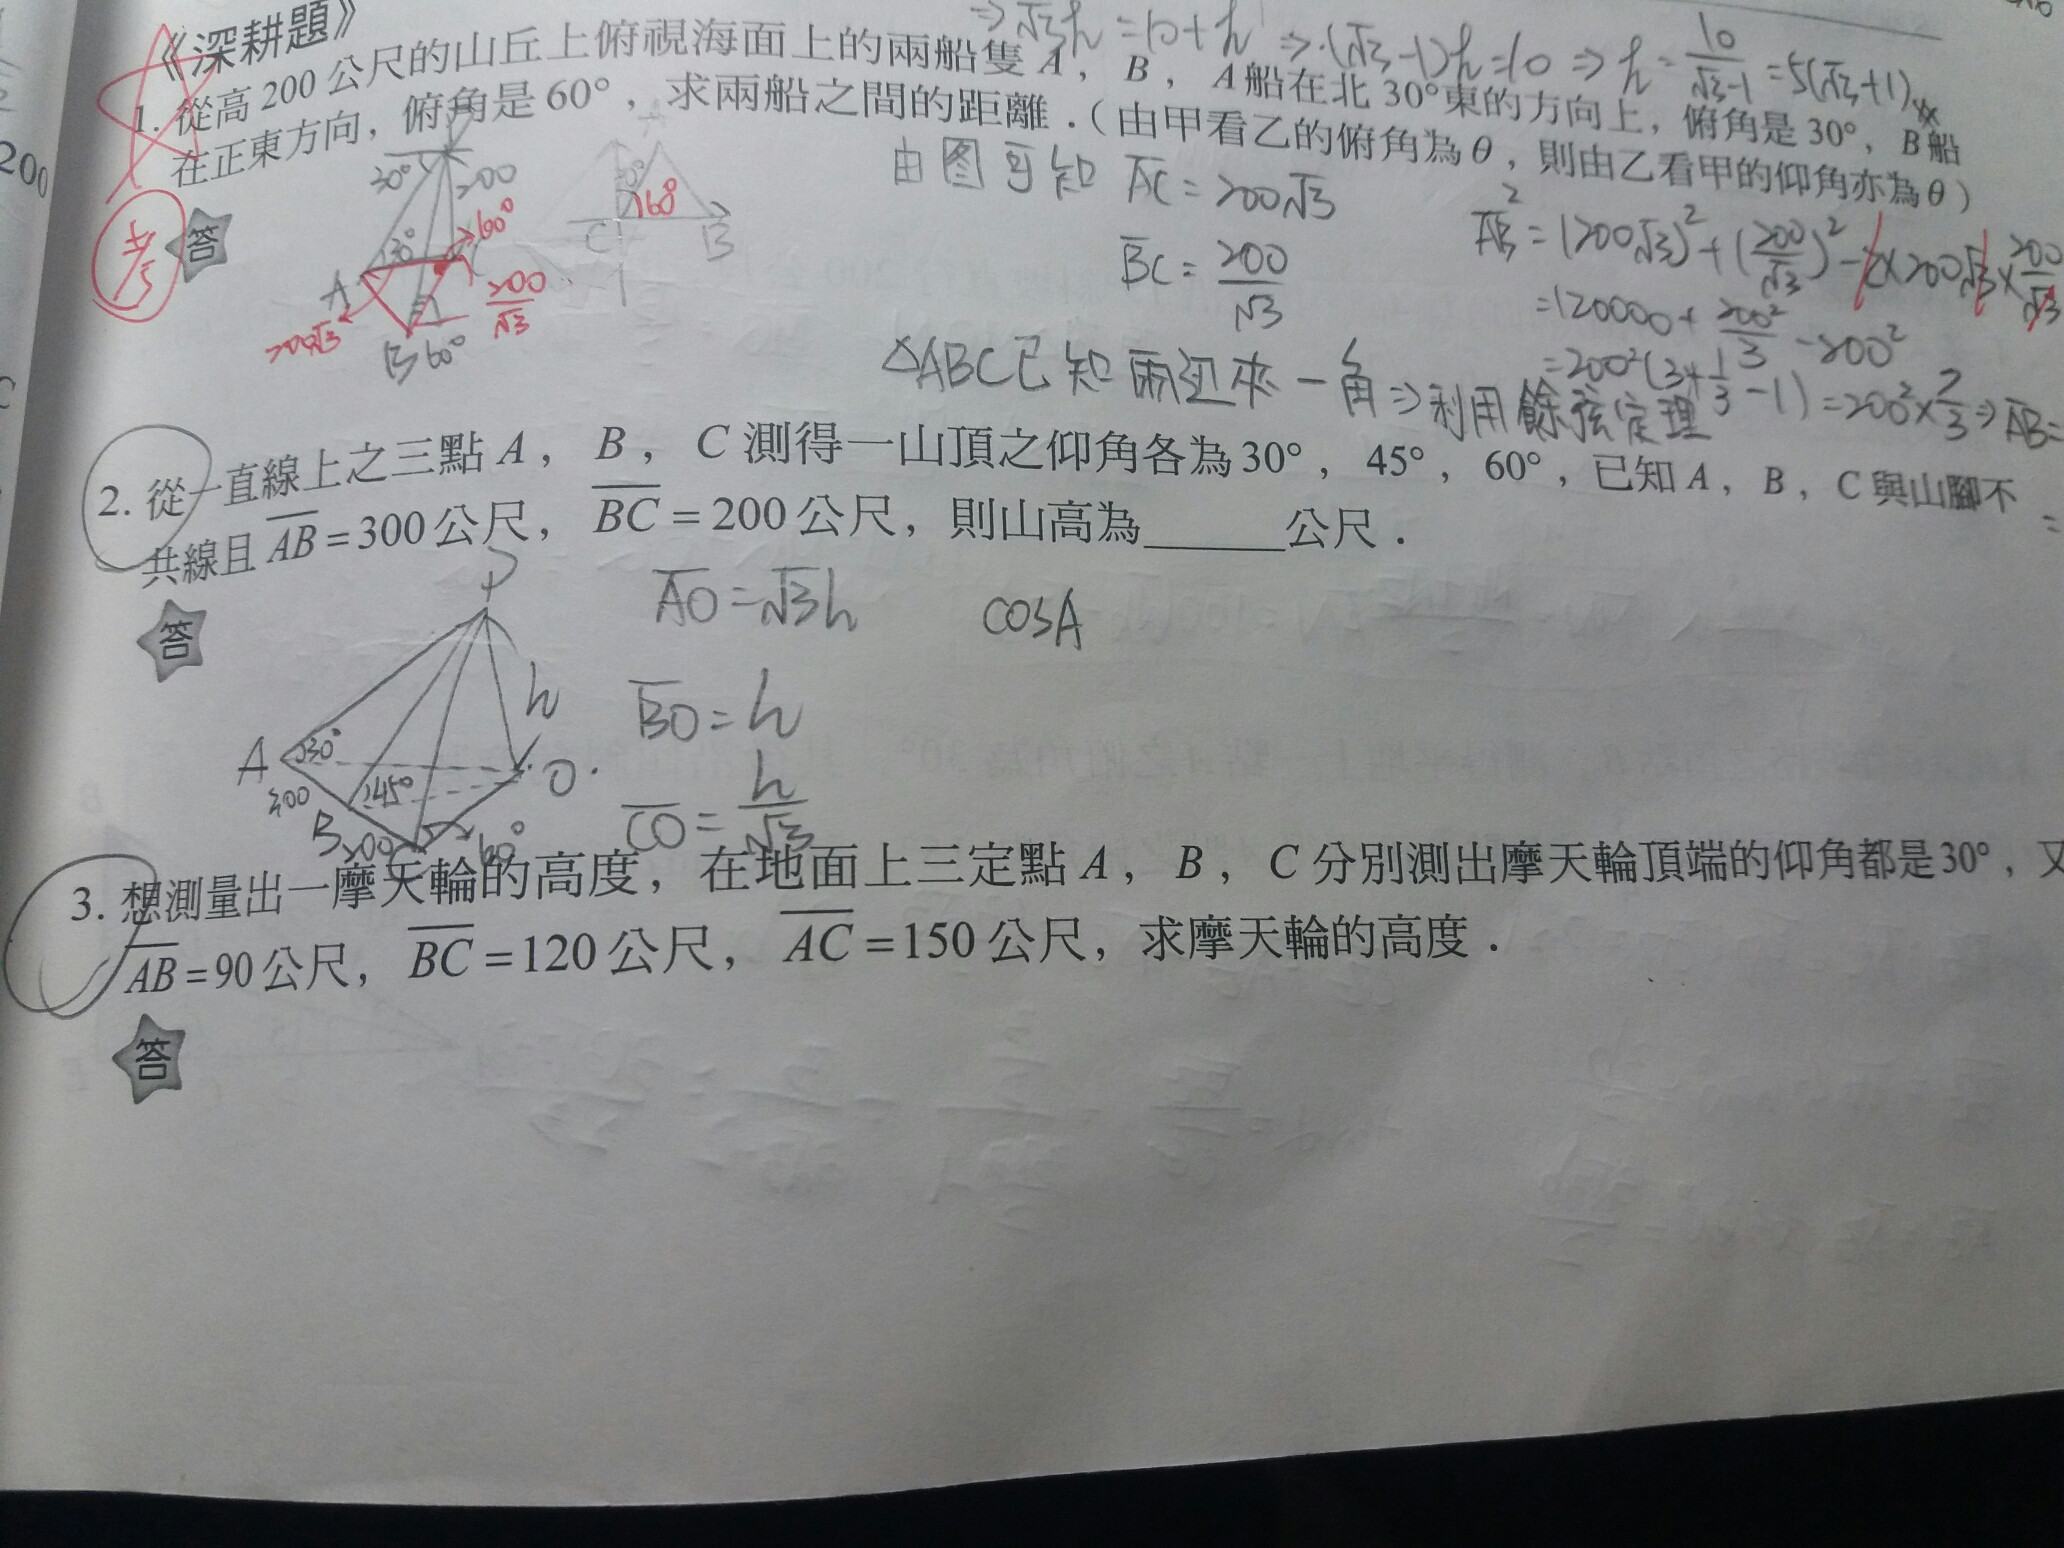 《深耕題》
⇒√3h=10+h ⇒(√3-1)h=10 ⇒h=10/(√3-1)=5(√3+1)
1. 從高200公尺的山丘上俯視海面上的兩船隻A，B，A船在北30°東的方向上，俯角是30°，B船
在正東方向，俯角是60°，求兩船之間的距離．（由甲看乙的俯角為θ，則由乙看甲的仰角亦為θ）
200
考
答
30°
200
60°
30°
A
200√3
B
60°
200/√3
60°
C
B
由图可知 AC=200√3
BC=200/√3
△ABC已知兩边夾一角⇒利用餘弦定理
AB²=(200√3)²+(200/√3)²-2×200√3×200/√3
=120000+200²/3-200²
=200²(3+1/3-1)=200²×7/3⇒AB=
2. 從一直線上之三點A，B，C測得一山頂之仰角各為30°，45°，60°，已知A，B，C與山腳不
共線且AB=300公尺，BC=200公尺，則山高為______公尺．
答
P
h
A
30°
300
B
45°
200
60°
O
AO=√3h
cosA
BO=h
CO=h/√3
3. 想測量出一摩天輪的高度，在地面上三定點A，B，C分別測出摩天輪頂端的仰角都是30°，又
AB=90公尺，BC=120公尺，AC=150公尺，求摩天輪的高度．
答